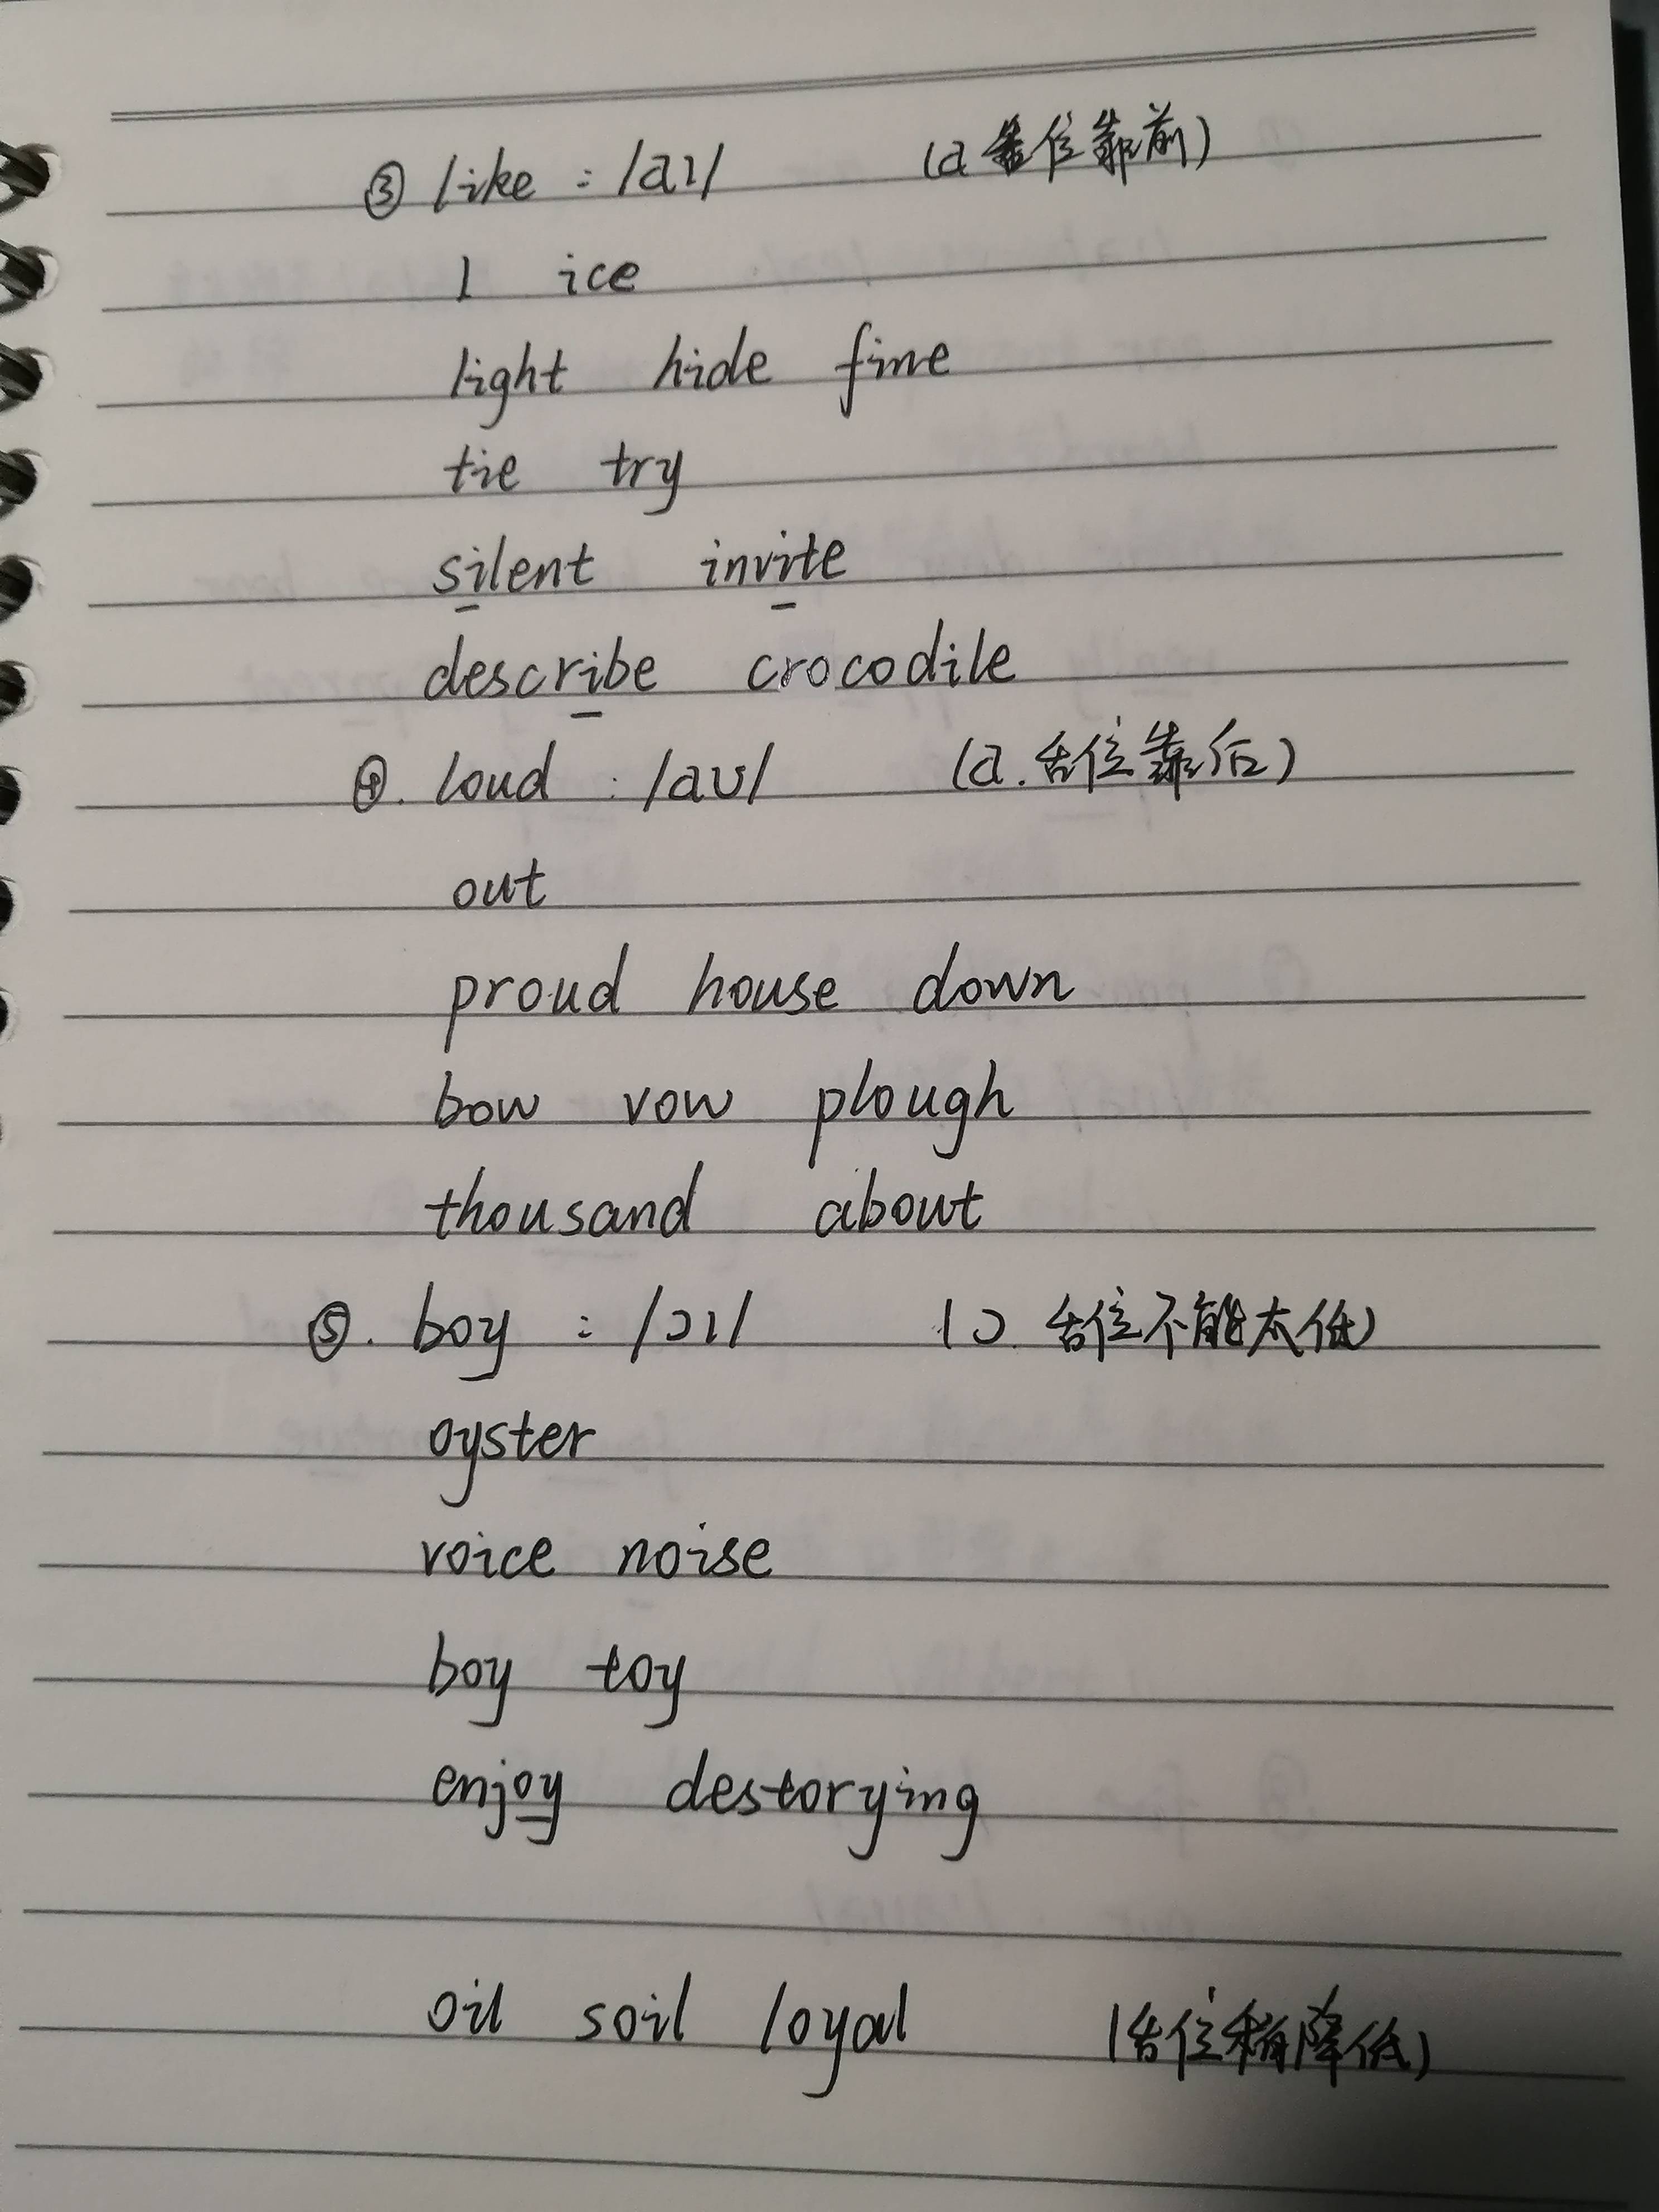 ③ like : /aɪ/ (a 舌位靠前)
I ice
light hide fine
tie try
silent invite
describe crocodile
④. loud : /aʊ/ (a. 舌位靠后)
out
proud house down
bow vow plough
thousand about
⑤. boy : /ɔɪ/ (ɔ. 舌位不能太低)
oyster
voice noise
boy toy
enjoy destorying
oil soil loyal (舌位稍降低)